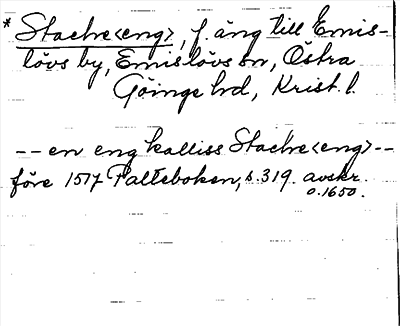 * Stachre<eng>, f. äng till Emis-
lövs by, Emislövs sn, Östra
Göinge hd, Krist. l.
-- en eng kalliss Stachre<eng>--
före 1517 Palteboken, s. 319. avskr.
o. 1650.